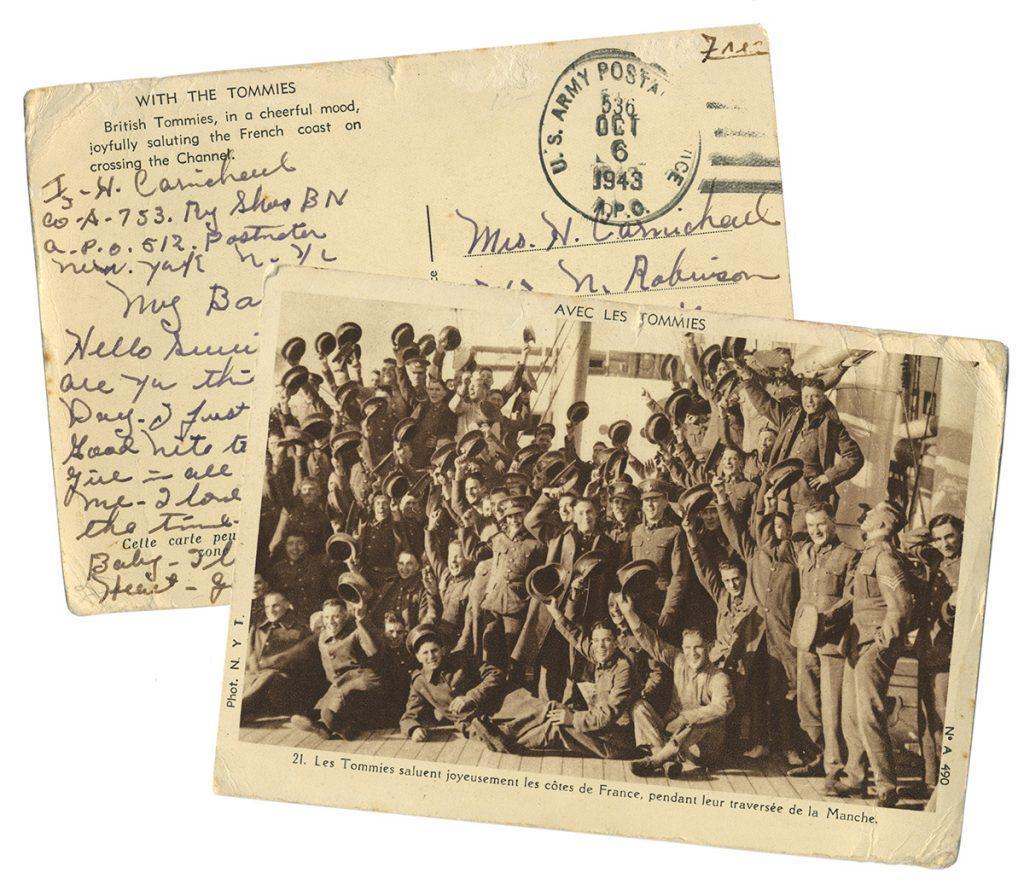 WITH THE TOMMIES
British Tommies, in a cheerful mood,
joyfully saluting the French coast on
crossing the Channel.
H. Carmichael
Co-A-753. Ry Shop BN
A.P.O. 512. Postmater
New. York N.Y.
My Ba
Hello
are yu thi
Day-I just
Good nite to
give = all
me-I love
the time-
Cette carte peu
zone
Baby-I l
Heart-
Free
U.S. ARMY POSTA
ICE
A.P.O.
536
OCT
6
1943
Mrs. H. Carmichael
N. Robinson
ce
AVEC LES TOMMIES
Phot. N Y T.
N° A 490
21. Les Tommies saluent joyeusement les côtes de France, pendant leur traversée de la Manche.